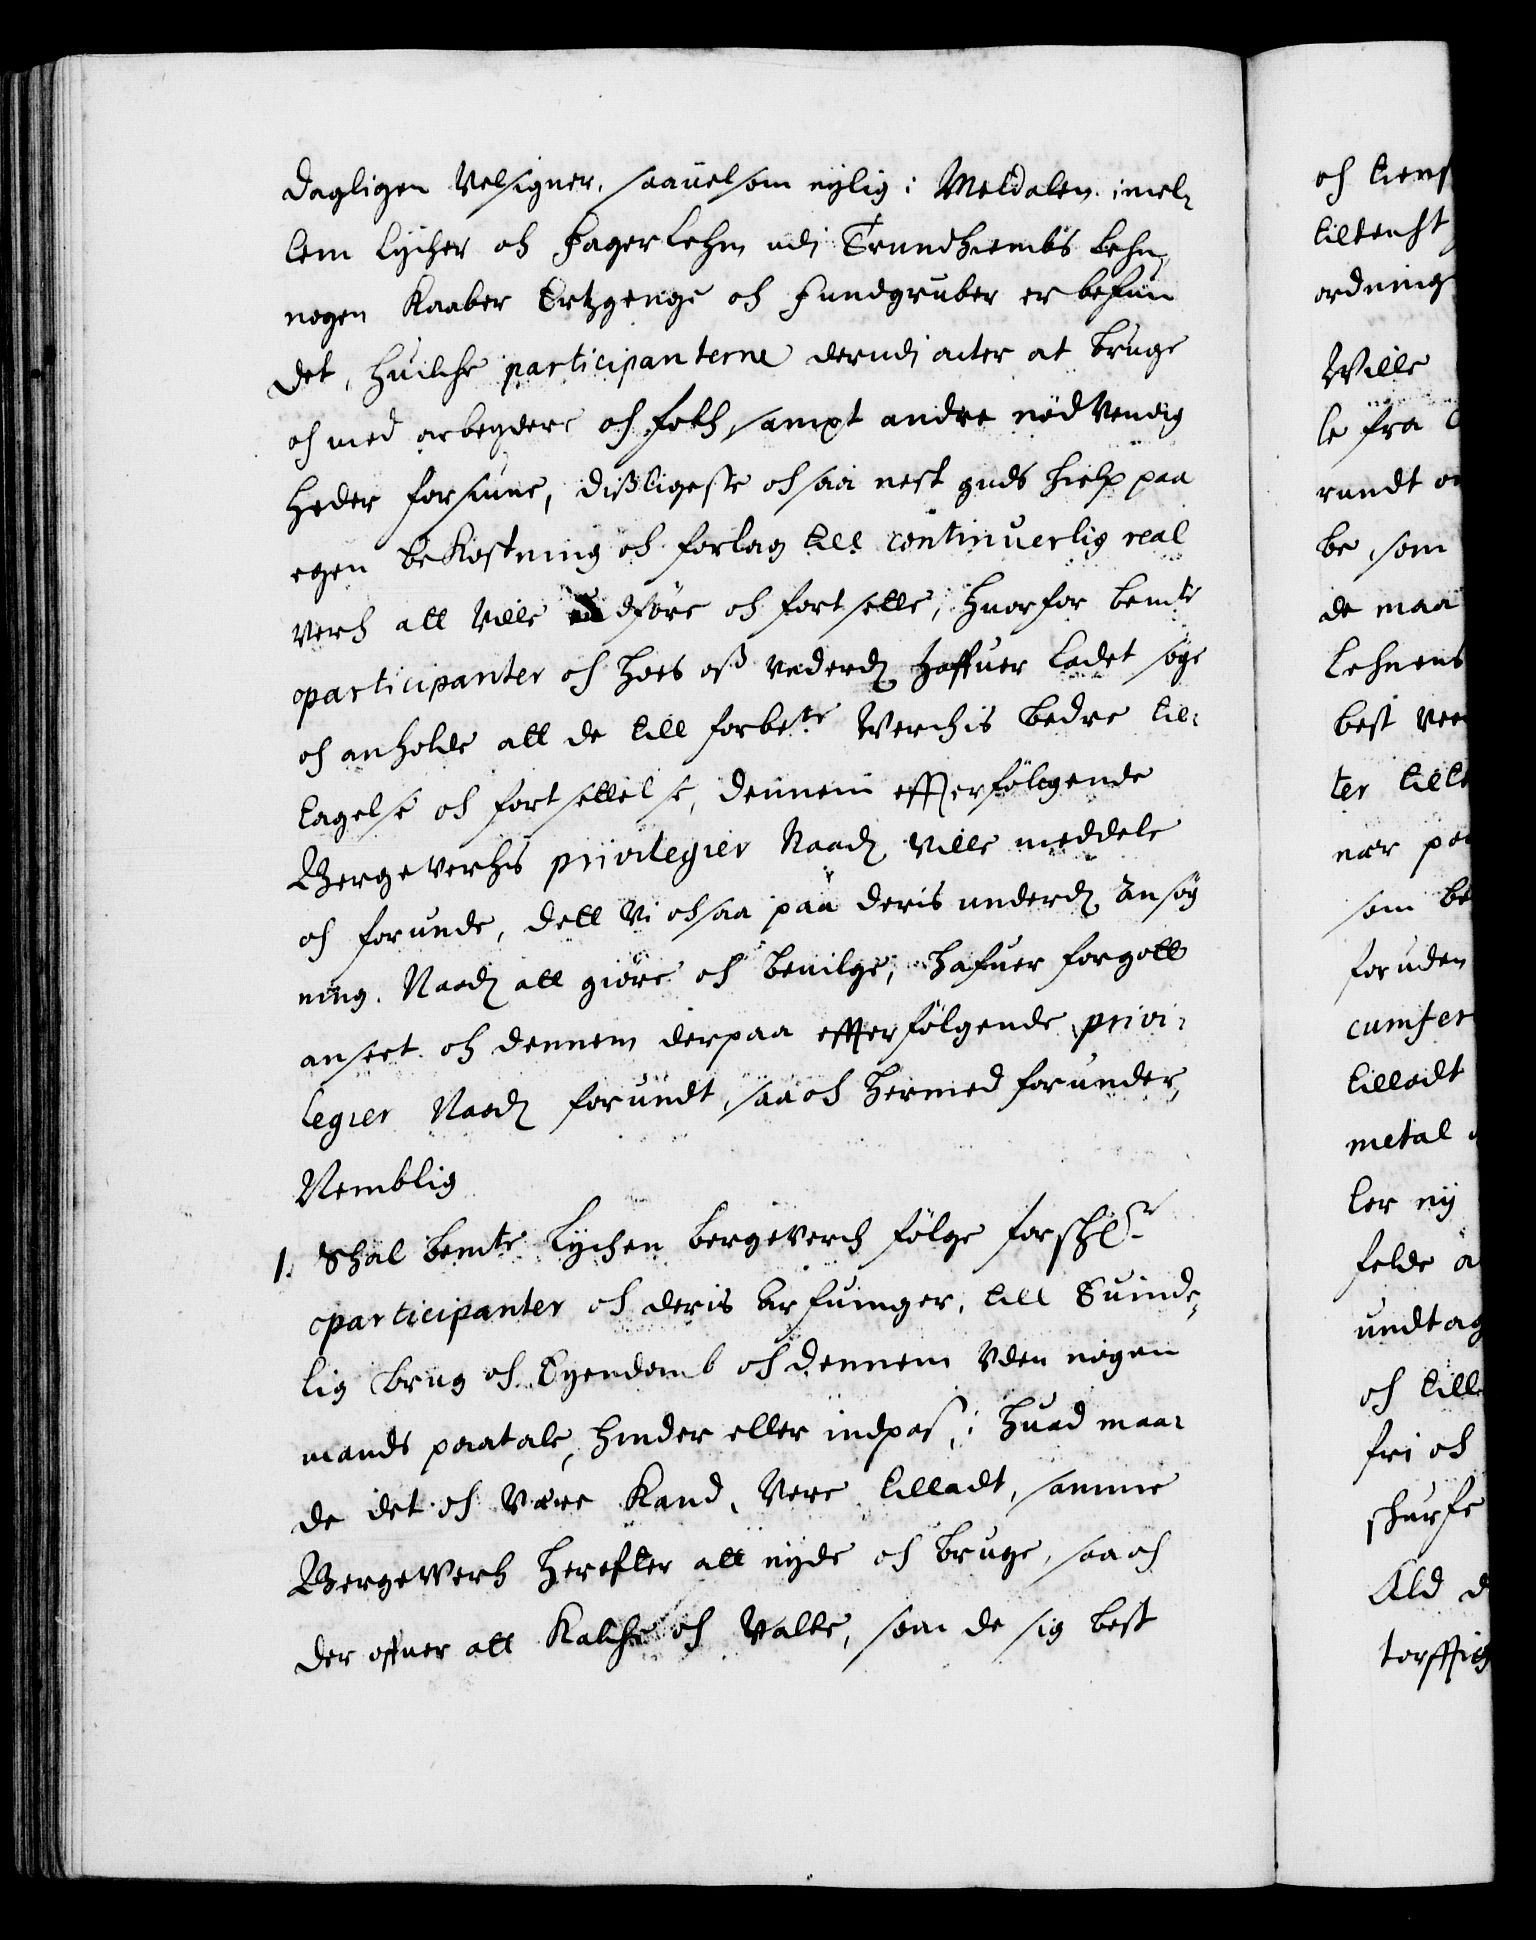 dagligen Velsigner, saauelsom nylig i Meldalen imel-
lem Lycher och Fagerlehn udi Trundhiembs Lehn,
nogen Kaaber Ertzgenge och fundgruber er befun
det, huilche participanterne derudi acter at bruge
och med arbeydere och folch, sampt andre nødvendig
heder forsiune, dißligeste och saa nest guds hielp paa
egen bekostning och forlag till continuerlig real
verch att ville udføre och fortsette, huorfor bemte
participanter och hoes oß underd haffuer ladet søge
och anholde att de till forbete Werchis bedre til-
tagelse och fortsettelse, dennem effterfølgende
Bergeverchs privilegier Naad ville meddele
och forunde, dett Vi och saa paa deris underd Ansøg
ning. Naad att giøre och beuilge, hafuer for gott
anseet och dennem derpaa effterfølgende privi-
legier Naad forundt, saa och hermed forunder,
Nemblig
1. Schal bemte Lychen bergeverch følge forsch:
participanter och deris Arfuinger, till Euinde-
lig brug och Eyendomb och dennem Uden nogen
mands paatale, hinder eller indpas, i huad maa-
de det och Være Kand, Vere tilladt, samme
Bergewerch herefter att nyde och bruge, saa och
der ofuer att Kalche och Valte, som de sig best
och tiens
tiltencht
ordning
Wille
le fra
rundt
be, som
de maa
Lehnens
best
ter
nær
som
foruden
tilladt
metal
ler ny
felde
undtag
och till
fri och
schurfe
Ald